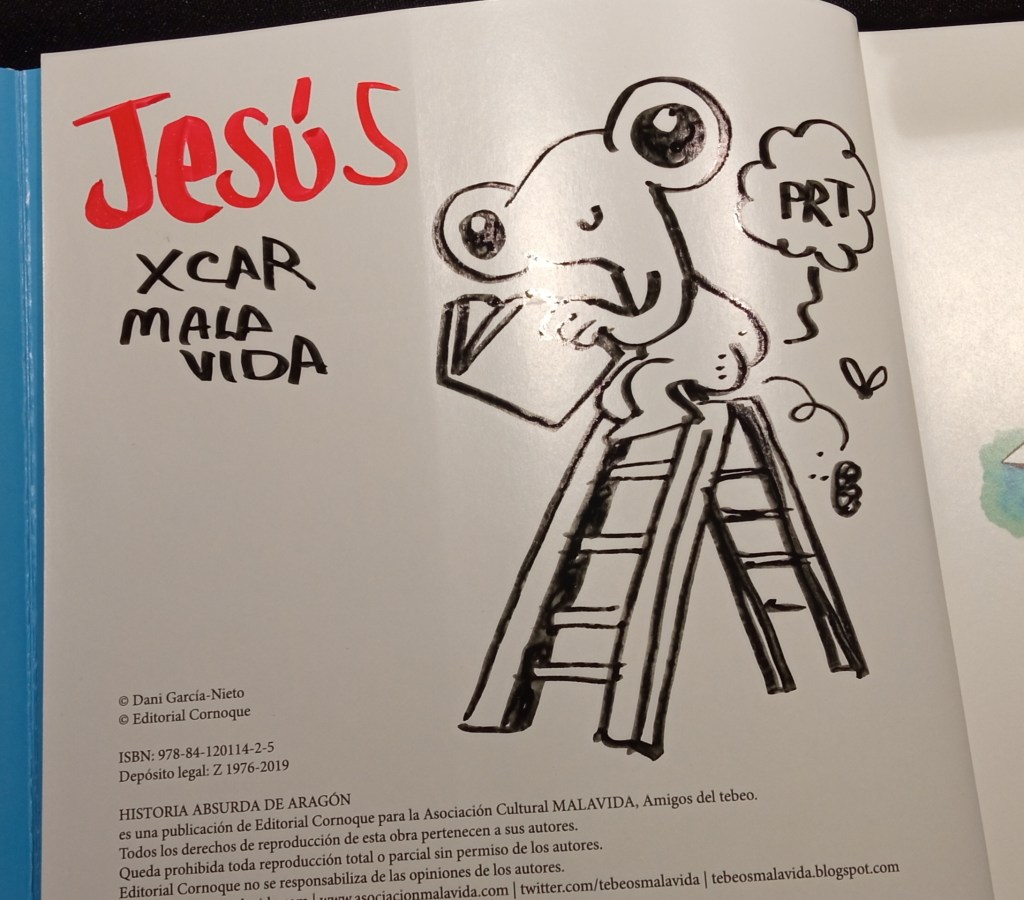 Jesús
XCAR
MALA
VIDA
PRT
© Dani García-Nieto
© Editorial Cornoque
ISBN: 978-84-120114-2-5
Depósito legal: Z 1976-2019
HISTORIA ABSURDA DE ARAGÓN
es una publicación de Editorial Cornoque para la Asociación Cultural MALAVIDA, Amigos del tebeo.
Todos los derechos de reproducción de esta obra pertenecen a sus autores.
Queda prohibida toda reproducción total o parcial sin permiso de los autores.
Editorial Cornoque no se responsabiliza de las opiniones de los autores.
| www.asociacionmalavida.com | twitter.com/tebeosmalavida | tebeosmalavida.blogspot.com